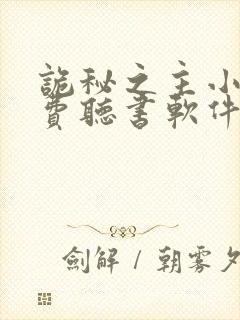 詭秘之主小
費聽書軟件
劍解 / 朝霧夕